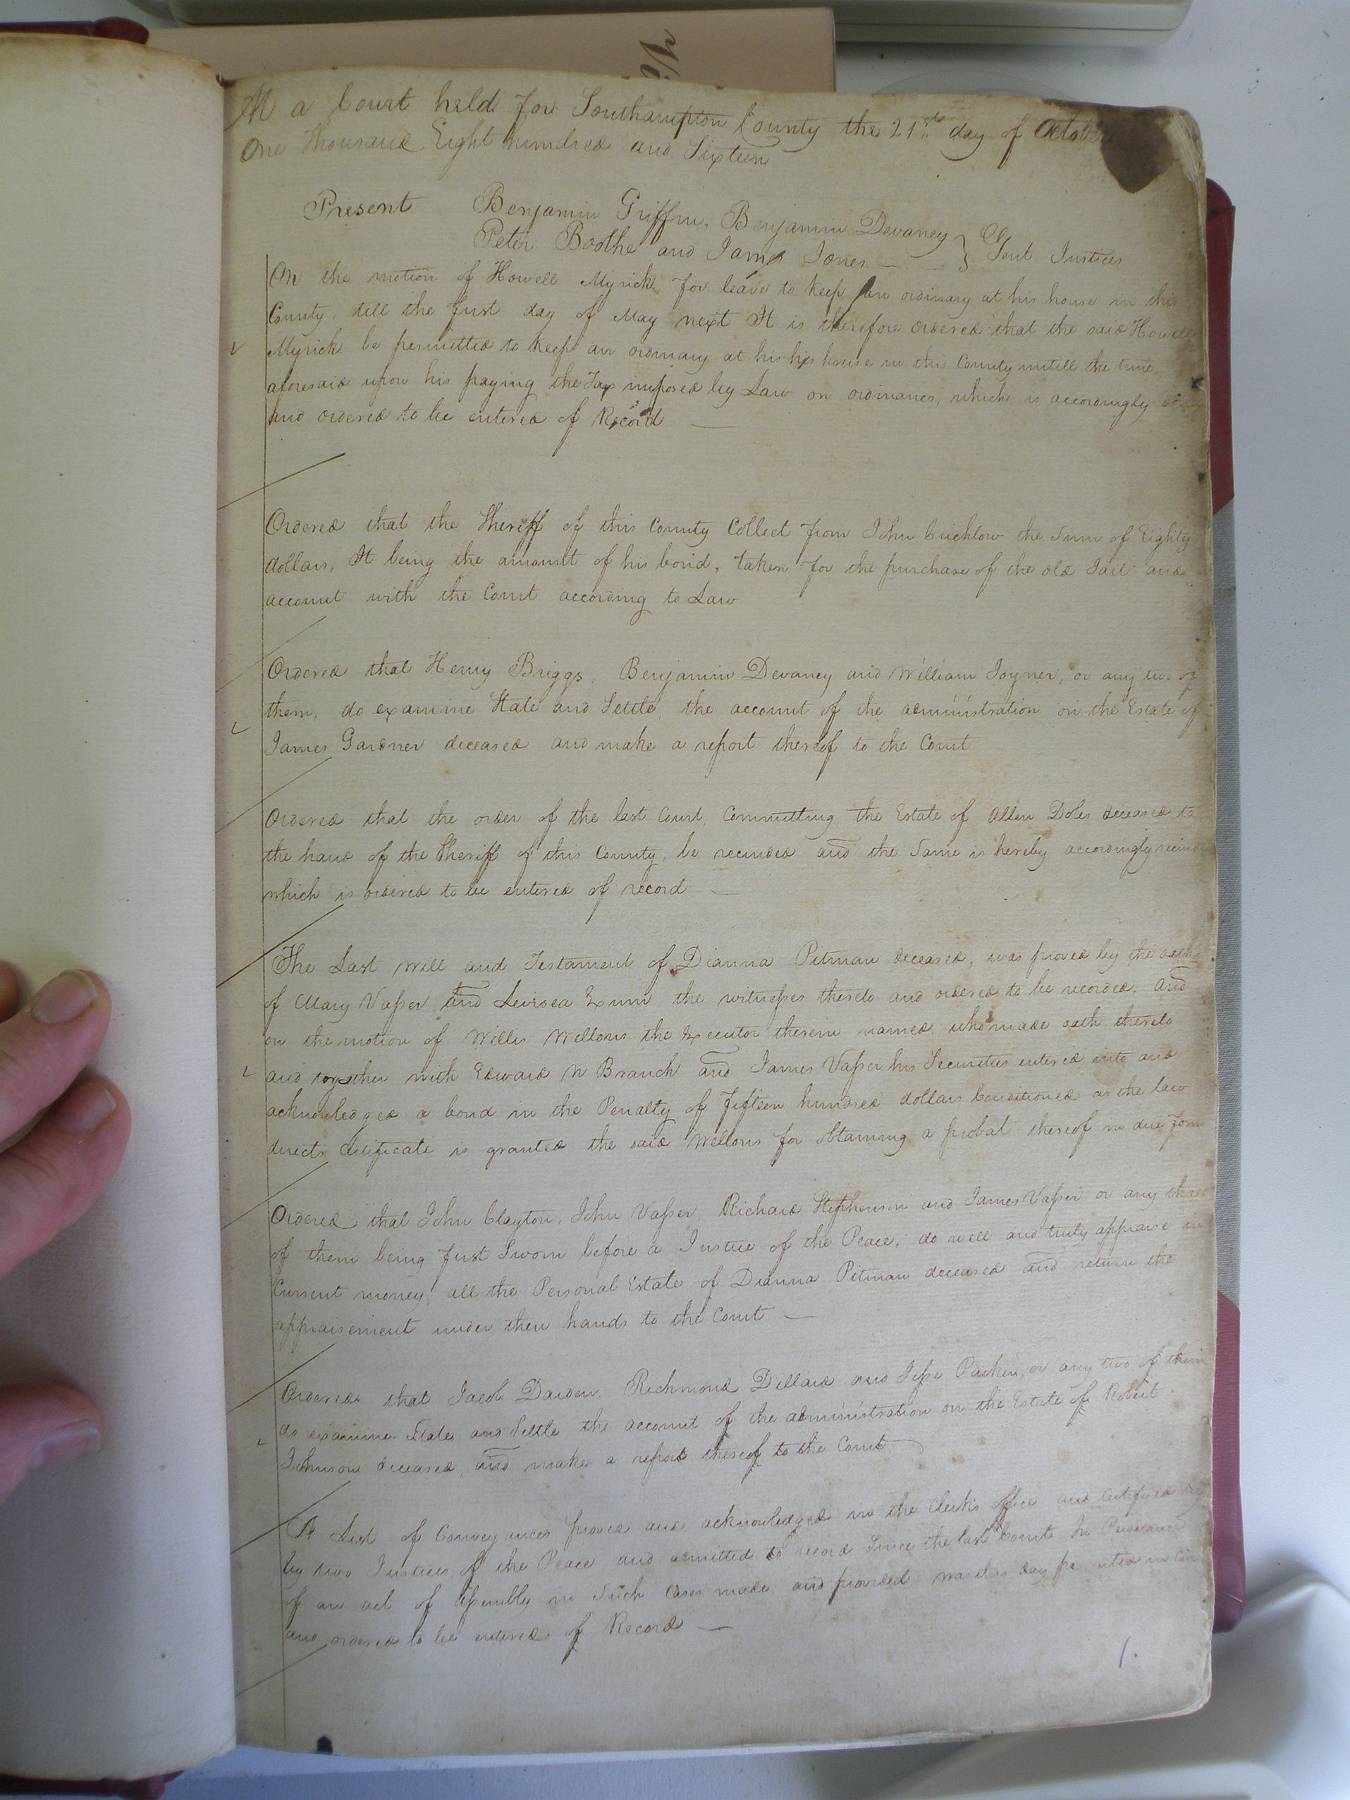 At a Court held for Southampton County the 21st day of October
One thousand Eight hundred and Sixteen
Present Benjamin Griffin, Benjamin Devaney
Peter Boothe and James Jones } Gent. Justices
On the motion of Howell Myrick for leave to keep an ordinary at his house in this
County, till the first day of May next It is therefore ordered that the said Howell
Myrick be permitted to keep an ordinary at his his house in this County untill the time
aforesaid upon his paying the Tax imposed by Law on ordinaries, which is accordingly
and ordered to be entered of Record
Ordered that the Sheriff of this County Collect from John Crichlow the Sum of Eighty
dollars, It being the amount of his bond, taken for the purchase of the old Jail and
account with the Court according to Law
Ordered that Henry Briggs, Benjamin Devaney and William Joyner, or any two of
them, do examine State and Settle, the account of the administration on the Estate of
James Gardner deceased and make a report thereof to the Court
Ordered that the order of the last Court, Committing the Estate of Allen Doles deceased to
the hand of the Sheriff of this County, be recinded and the Same is hereby accordingly
which is ordered to be entered of record
The Last Will and Testament of Dianna Pitman deceased, was proved by the oaths
of Mary Vasser and Levisea Exum the witnesses thereto and ordered to be recorded. And
on the motion of Willis Wellons the Executor therein named who made oath thereto
and together with Edward W Branch and James Vasser his Securities entered into and
acknowledged a bond in the Penalty of fifteen hundred dollars Conditioned as the law
directs Certificate is granted the said Wellons for obtaining a probat thereof in due form
Ordered that John Clayton, John Vasser Richard Stephenson and James Vasser or any three
of them being first Sworn before a Justice of the Peace, do well and truly appraise in
Current money all the Personal Estate of Dianna Pitman deceased and return the
appraisement under their hands to the Court
Ordered that Jacob Darden, Richmond Dillard and Jesse Parker, or any two of them
do examine State and Settle the account of the administration on the Estate of Robert
Johnson deceased, and make a report thereof to the Court
A List of Conveyances proved and acknowledged in the Clerks office and Certifyed
by two Justices of the Peace and admitted to record Since the last Court In Pursuance
of an act of Assembly in Such Cases made and provided was this day
and ordered to be entered of Record
1.